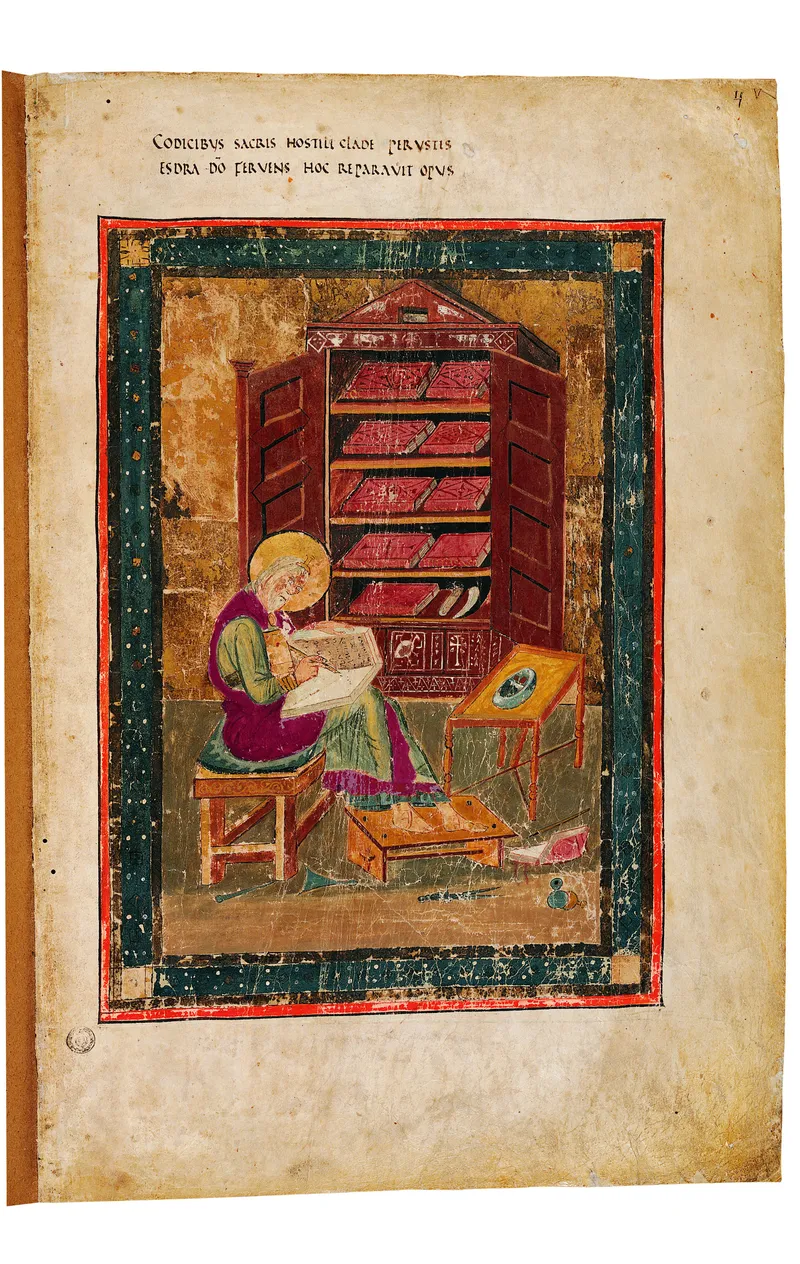 CODICIBVS SACRIS HOSTILI CLADE PERVSTIS
ESDRA D̅O FERVENS HOC REPARAVIT OPVS